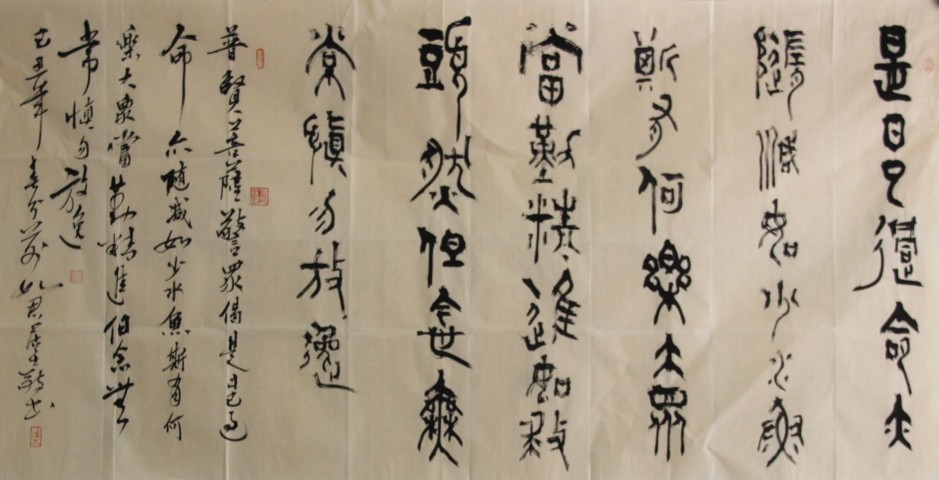 是日已過命亦
隨減如少水魚
斯有何樂大眾
當勤精進如救
頭然但念無
常慎勿放逸
普賢菩薩警眾偈是日已過
命亦隨減如少水魚斯有何
樂大眾當勤精進但念無
常慎勿放逸
己丑年春敬书